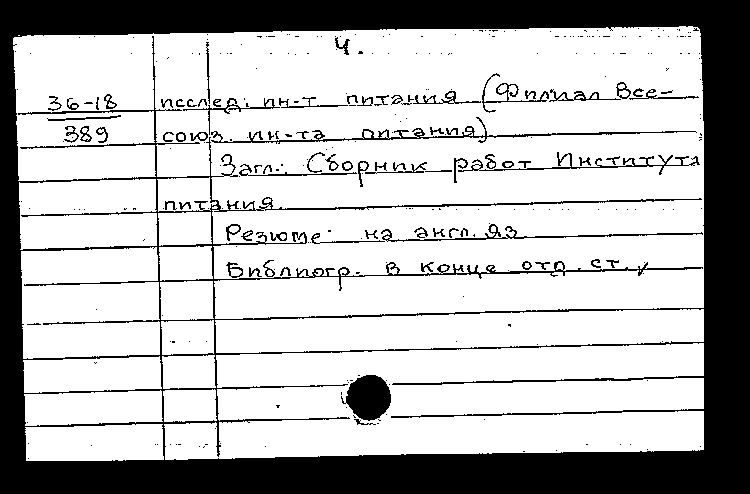 4.
36-18 исслед. ин-т питания (Филиал Все-
389 союз. ин-та питания)
Загл.: Сборник работ Института
питания.
Резюме на англ. яз
Библиогр. в конце отд. ст.